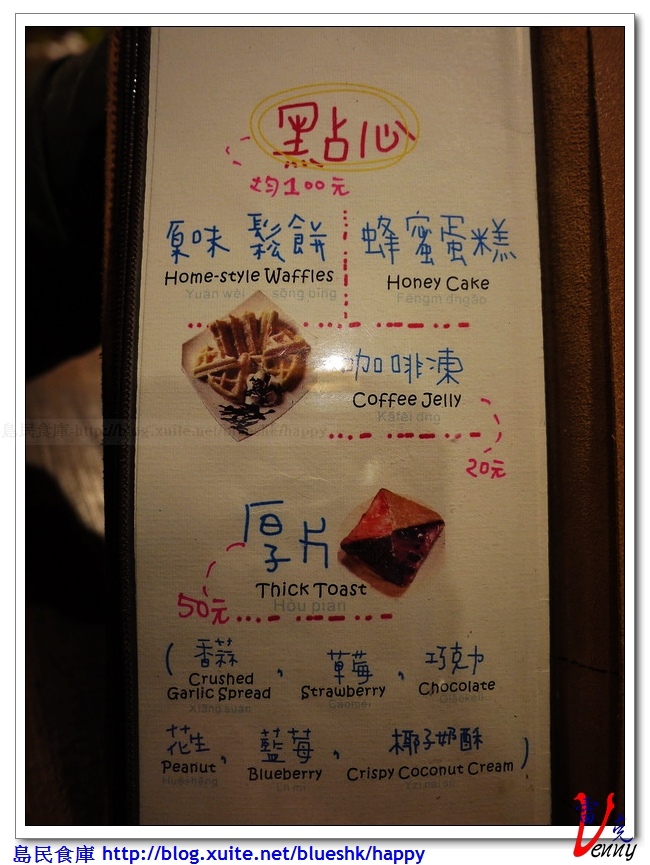 點心
均100元
原味 鬆餅
Home-style Waffles
Yuán wèi sōng bǐng
蜂蜜蛋糕
Honey Cake
咖啡凍
Coffee Jelly
20元
厚片
Thick Toast
Hòu piàn
50元
(香蒜, 草莓, 巧克力
Crushed Garlic Spread Strawberry Chocolate
花生, 藍莓, 椰子奶酥)
Peanut Blueberry Crispy Coconut Cream
島民食庫 http://blog.xuite.net/blueshk/happy
Venny
島民食庫 http://blog.xuite.net/blueshk/happy